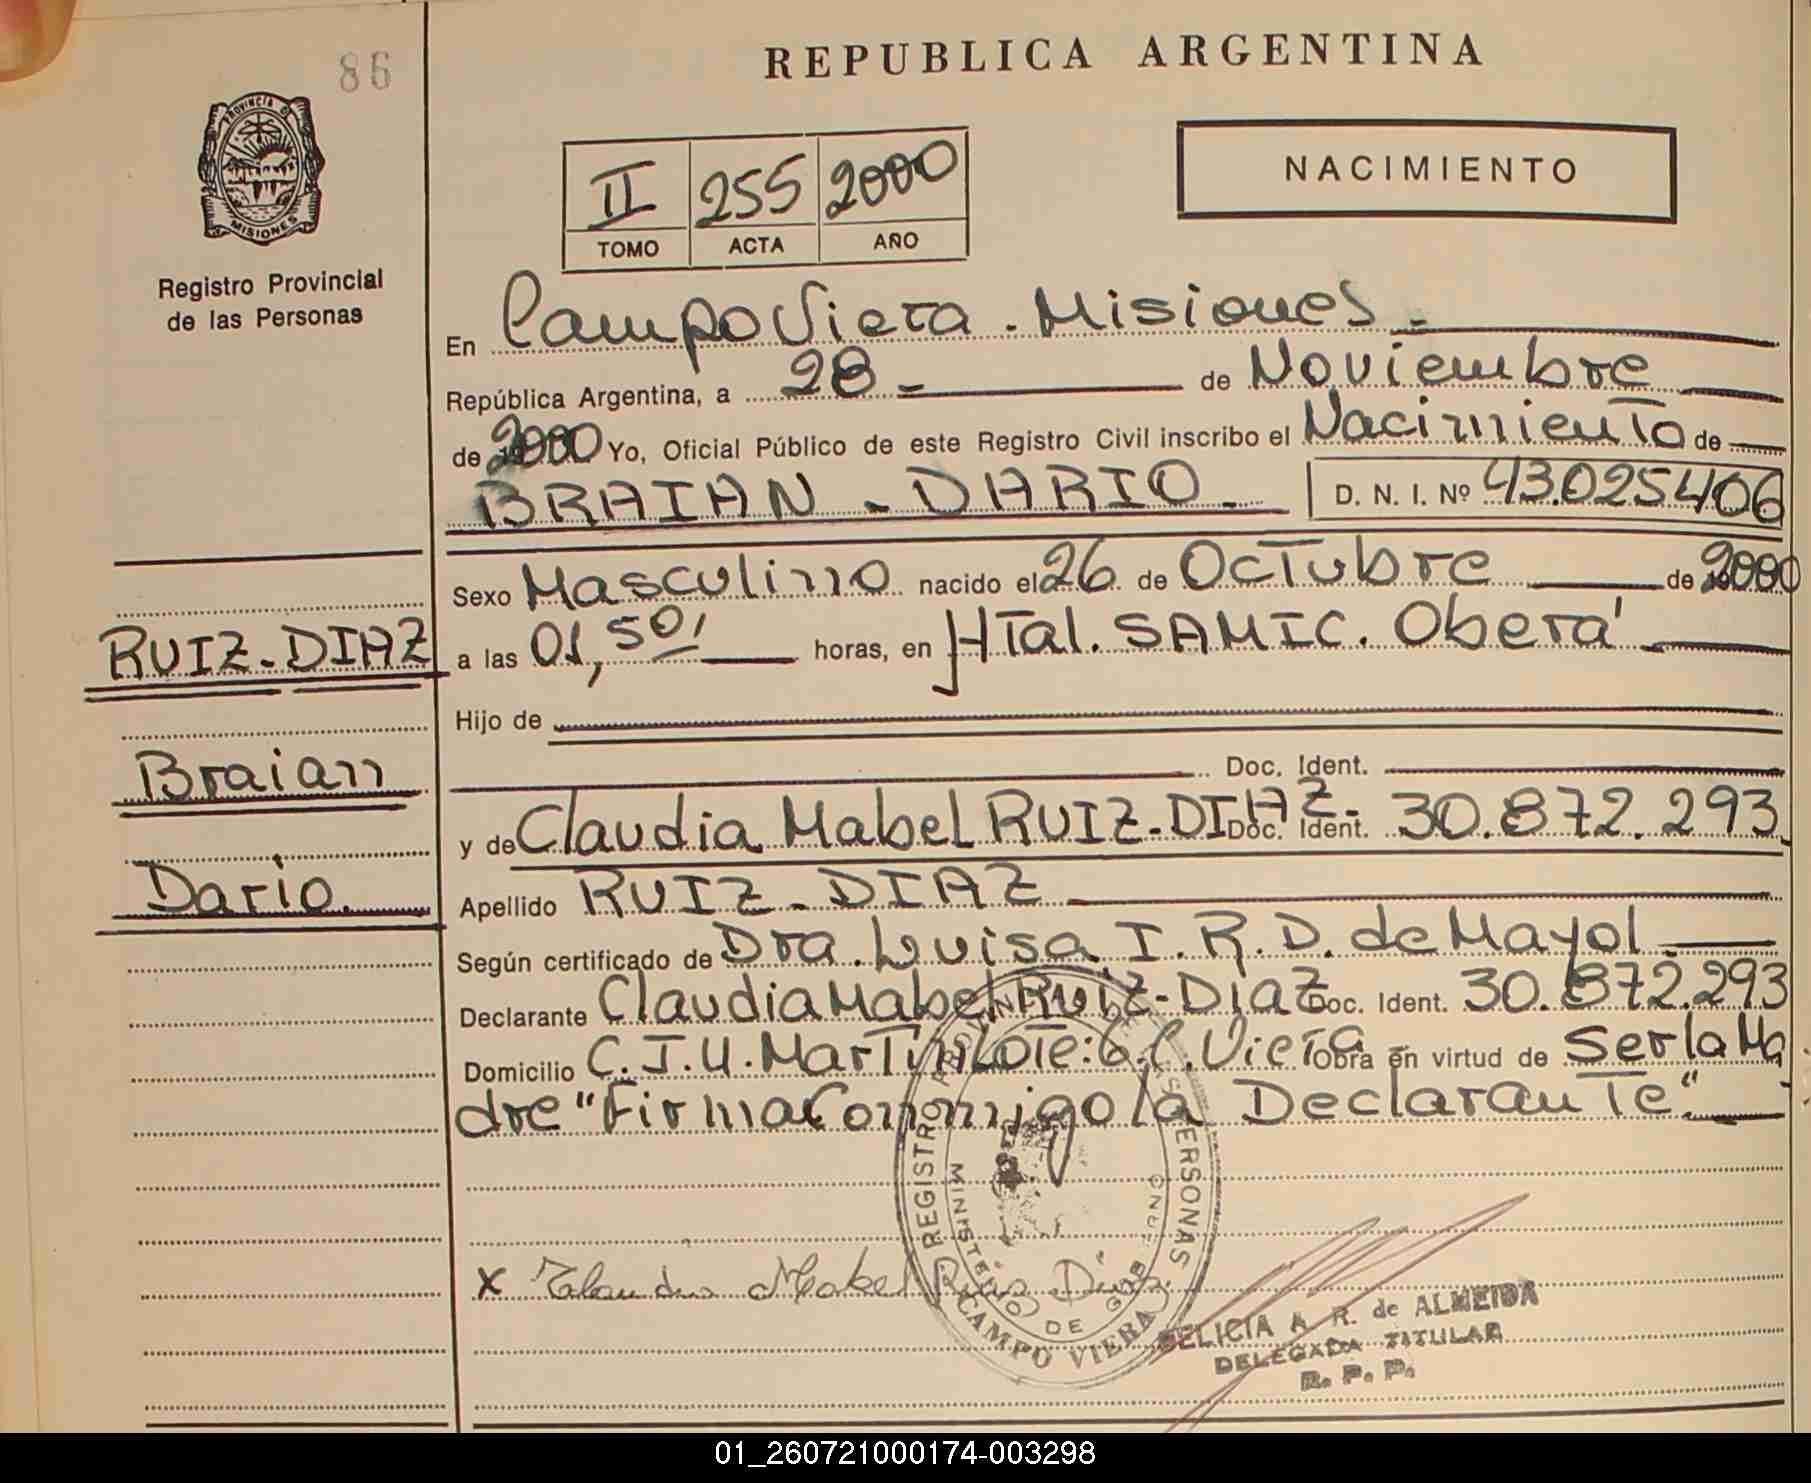 86
REPUBLICA ARGENTINA
PROVINCIA DE MISIONES
II 255 2000
TOMO ACTA AÑO
NACIMIENTO
Registro Provincial
de las Personas
En Campo Viera - Misiones -
República Argentina, a 28 - de Noviembre
de 2000 Yo, Oficial Público de este Registro Civil inscribo el Nacimiento de
BRAIAN - DARIO - D. N. I. Nº 43.025406
Sexo Masculino nacido el 26 de Octubre de 2000
RUIZ-DIAZ
a las 01,50, horas, en HTal. SAMIC. Oberá
Hijo de
Braian
Doc. Ident.
y de Claudia Mabel RUIZ-DIAZ- Doc. Ident. 30.872.293
Dario
Apellido RUIZ-DIAZ
Según certificado de Dra. Luisa I. R. D. de Mayol
Declarante Claudia Mabel Ruiz-Diaz Doc. Ident. 30.872.293
Domicilio C.J.U. Martin LOTe: 6. C. Viera Obra en virtud de Ser la Ma
dre "Firma Conmigo la Declarante"
REGISTRO PROVINCIAL DE LAS PERSONAS
MINISTERIO DE GOB
CAMPO VIERA
X Claudia Mabel Ruis Diaz
DELICIA A. R. de ALMEIDA
DELEGADA TITULAR
R. P. P.
01_260721000174-003298